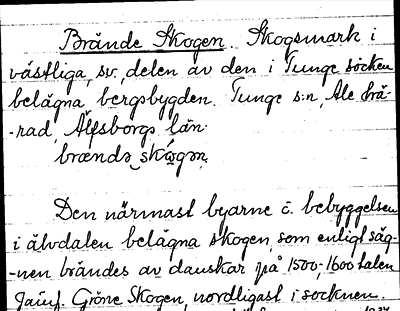 Brände Skogen. Skogsmark i
västliga, sv. delen av den i Tunge socken
belägna bergsbygden. Tunge s:n, Ale hä-
-rad, Älfsborgs län.
brœndə skόgən.
Den närmast byarne o. bebyggelsen
i älvdalen belägna skogen, som enligt säg-
-nen brändes av danskar på 1500-, 1600 talen
Jämf. Gröne Skogen, nordligast i socknen.